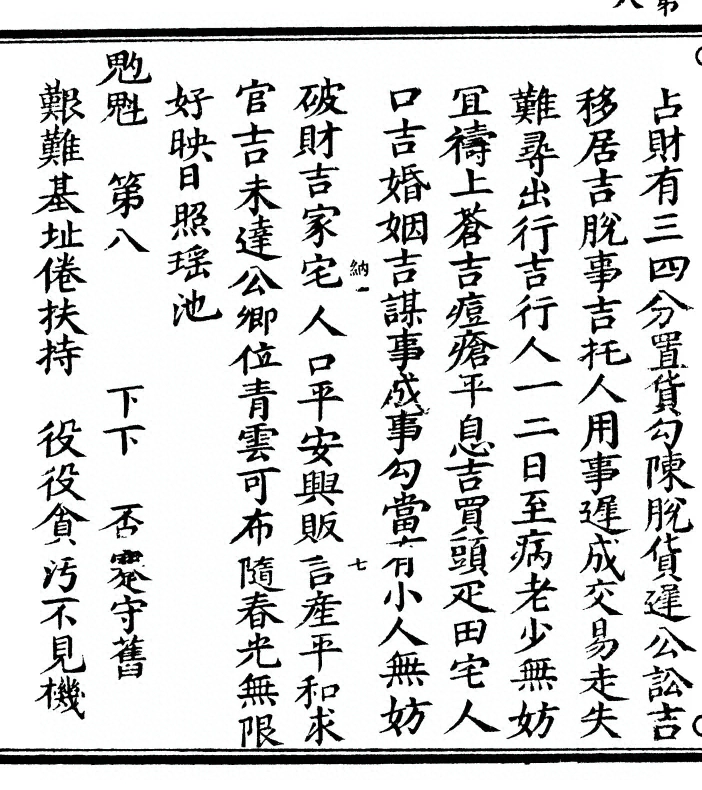 占財有三四分置貨勾陳脫貨遲公訟吉
移居吉脫事吉托人用事遲成交易走失
難尋出行吉行人一二日至病老少無妨
宜禱上蒼吉痘瘡平息吉買頭疋田宅人
口吉婚姻吉謀事成事勾當有小人無妨
納 七
破財吉家宅人口平安興販吉產平和求
官吉未達公卿位青雲可布隨春光無限
好映日照瑶池
魁 第八 下下 否蹇守舊
艱難基址倦扶持 役役貪污不見機